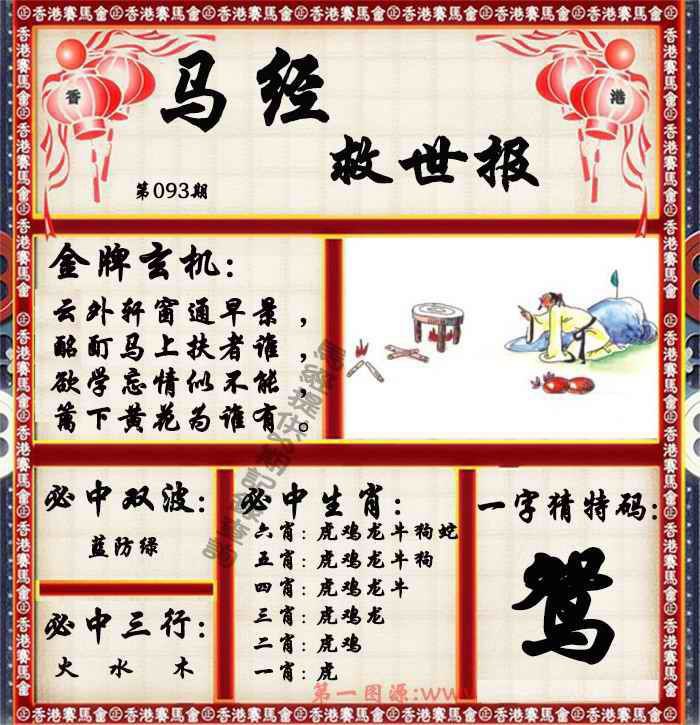 香港賽馬會㊣香港賽馬會㊣香港賽馬會㊣香港賽馬會㊣香港賽馬會㊣香港賽馬會㊣香港賽馬會
香
港
马经
救世报
第093期
金牌玄机：
云外轩窗通早景，
酩酊马上扶者谁，
欲学忘情似不能，
篱下黄花为谁有。
必中双波：
蓝防绿
必中三行：
火 水 木
必中生肖：
六肖：虎鸡龙牛狗蛇
五肖：虎鸡龙牛狗
四肖：虎鸡龙牛
三肖：虎鸡龙
二肖：虎鸡
一肖：虎
一字猜特码：
鸳
第一图源:www